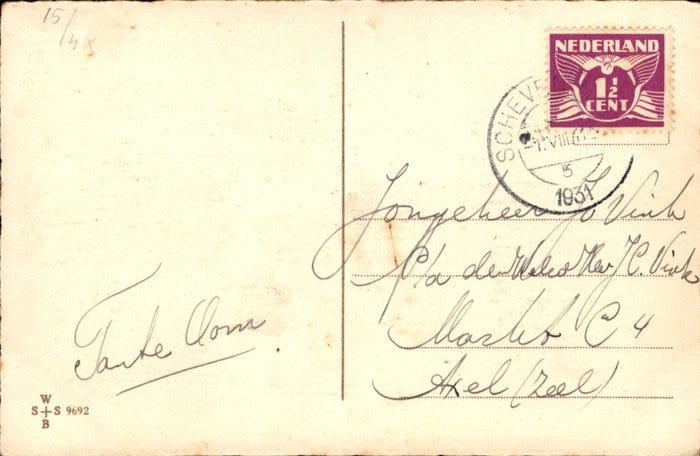 15/
/4x
NEDERLAND
1 1/2
CENT
SCHEVE
VIII
5
1931
Jongeheer Jo Vink
C/a de Heer J C. Vink
Markt C 4
Axel (Zeel)
Tante Oom
W
S S 9692
B